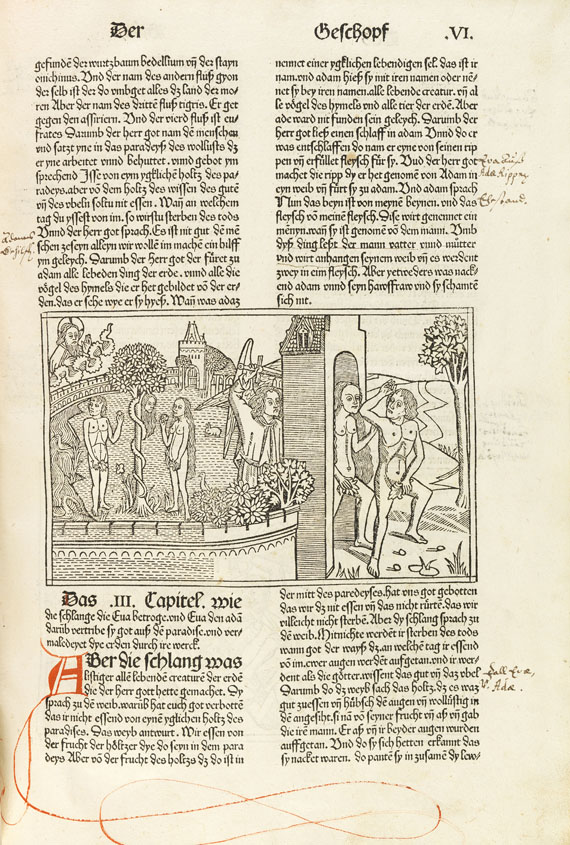 Der
Geschopf
.VI.
gefundē der wurtzbaum bedellium vn̄ der stayn
onichinus. Vnd der nam des andern fluß gyon
der selb ist der do vmbget alles dz land der mo-
ren Aber der nam des drittē fluß tigris. Er get
gegen den assiriern. Vnd der vierd fluß ist eu-
frates Darumb der herr got nam dē menschen
vnd satzt yne in das paradeyß des wollusts dz
er yne arbeitet vnnd behuttet. vnnd gebot ym
sprechend Isse von eym ygkliche holtz des pa-
radeys. aber vō dem holtz des wissen des gutē
vn̄ des vbeln soltu nit essen. Wan̄ an welchem
tag du yssest von im. so wirstu sterben des tods
Vnnd der herr got sprach. Es ist nit gut dē mē
schen zeseyn alleyn wir wollē im machē ein hilff
ym geleych. Darumb der herr got der fūret zu
adam alle lebeden ding der erde. vnnd alle die
vögel des hymels die er het gebildet vō der er-
den. das er sehe wye er sy hyeß. Wan̄ was adaz
nennet einer ygklichen lebendigen sel. das ist ir
nam. vnd adam hieß sy mit iren namen oder nē-
net sy bey iren namen. alle lebende creatur. vn̄ al
le vögel des hymels vnd alle tier der erdē. Aber
ade ward nit funden sein geleych. Darumb der
herr got ließ einen schlaff in adam Vnnd do er
was entschlaffen do nam er eyne von seinen rip
pen vn̄ erfüllet fleysch für sy. Vnd der herr got
machet die ripp dy er het genomē von Adam in
eyn weib vn̄ fürt sy zu adam. Vnd adam sprach
Nun das beyn ist von meynē beynen. vnd das
fleysch vō meinē fleysch. Dise wirt genennet ein
mēnyn. wan̄ sy ist genomē vō dem mann. Vmb
dyß ding leßt der mann vatter vnnd mütter
vnd wirt anhangen seynem weib vn̄ es werdent
zwey in eim fleysch. Aber yetweders was nack-
end adam vnnd seyn hawsfraw vnd sy schamtē
sich nit.
Das .III. Capitel. wie
die schlange die Eua betroge. vnd Euā den adā
darüb vertribe sy got auß dē paradise. vnd ver-
maledeyet dye erden durch irc werck.
ABer die schlang was
listiger allē lebendē creaturē der erdē
die der herr gott hette gemachet. Sy
sprach zu dē weib. warüb hat euch got verbottē
das ir nicht essend von eynē yglichen holtz des
paradises. Das weyb antwurt. Wir essen von
der frucht der höltzer dye do seyn in dem para
deys Aber vō der frucht des holtzs dz do ist in
der mitt des paredeyses. hat vns got gebotten
das wir dz nit essen vn̄ das nicht rürtē. das wir
villeicht nicht sterbē. Aber dy schlang sprach zu
dē weib. Mitnichte werdēt ir sterben des tods
wann got der wayß dz. an welchē tag ir essend
vō im. ewer augen werdēt aufgetan. vnd ir wer-
dent als die götter. wissent das gut vn̄ daz vbel
Darumb do dz weyb sach das holtz. dz es waz
gut zuessen vn̄ hübsch dē augen vn̄ wollüstig in
dē angesiht. sy nā vō seyner frucht vn̄ aß vn̄ gab
die irē mann. Er aß vn̄ ir beyder augen wurden
auffgetan. Vnd do sy sich hetten erkannt das
sy nacket waren. do pantē sy in zusamē dy lew-